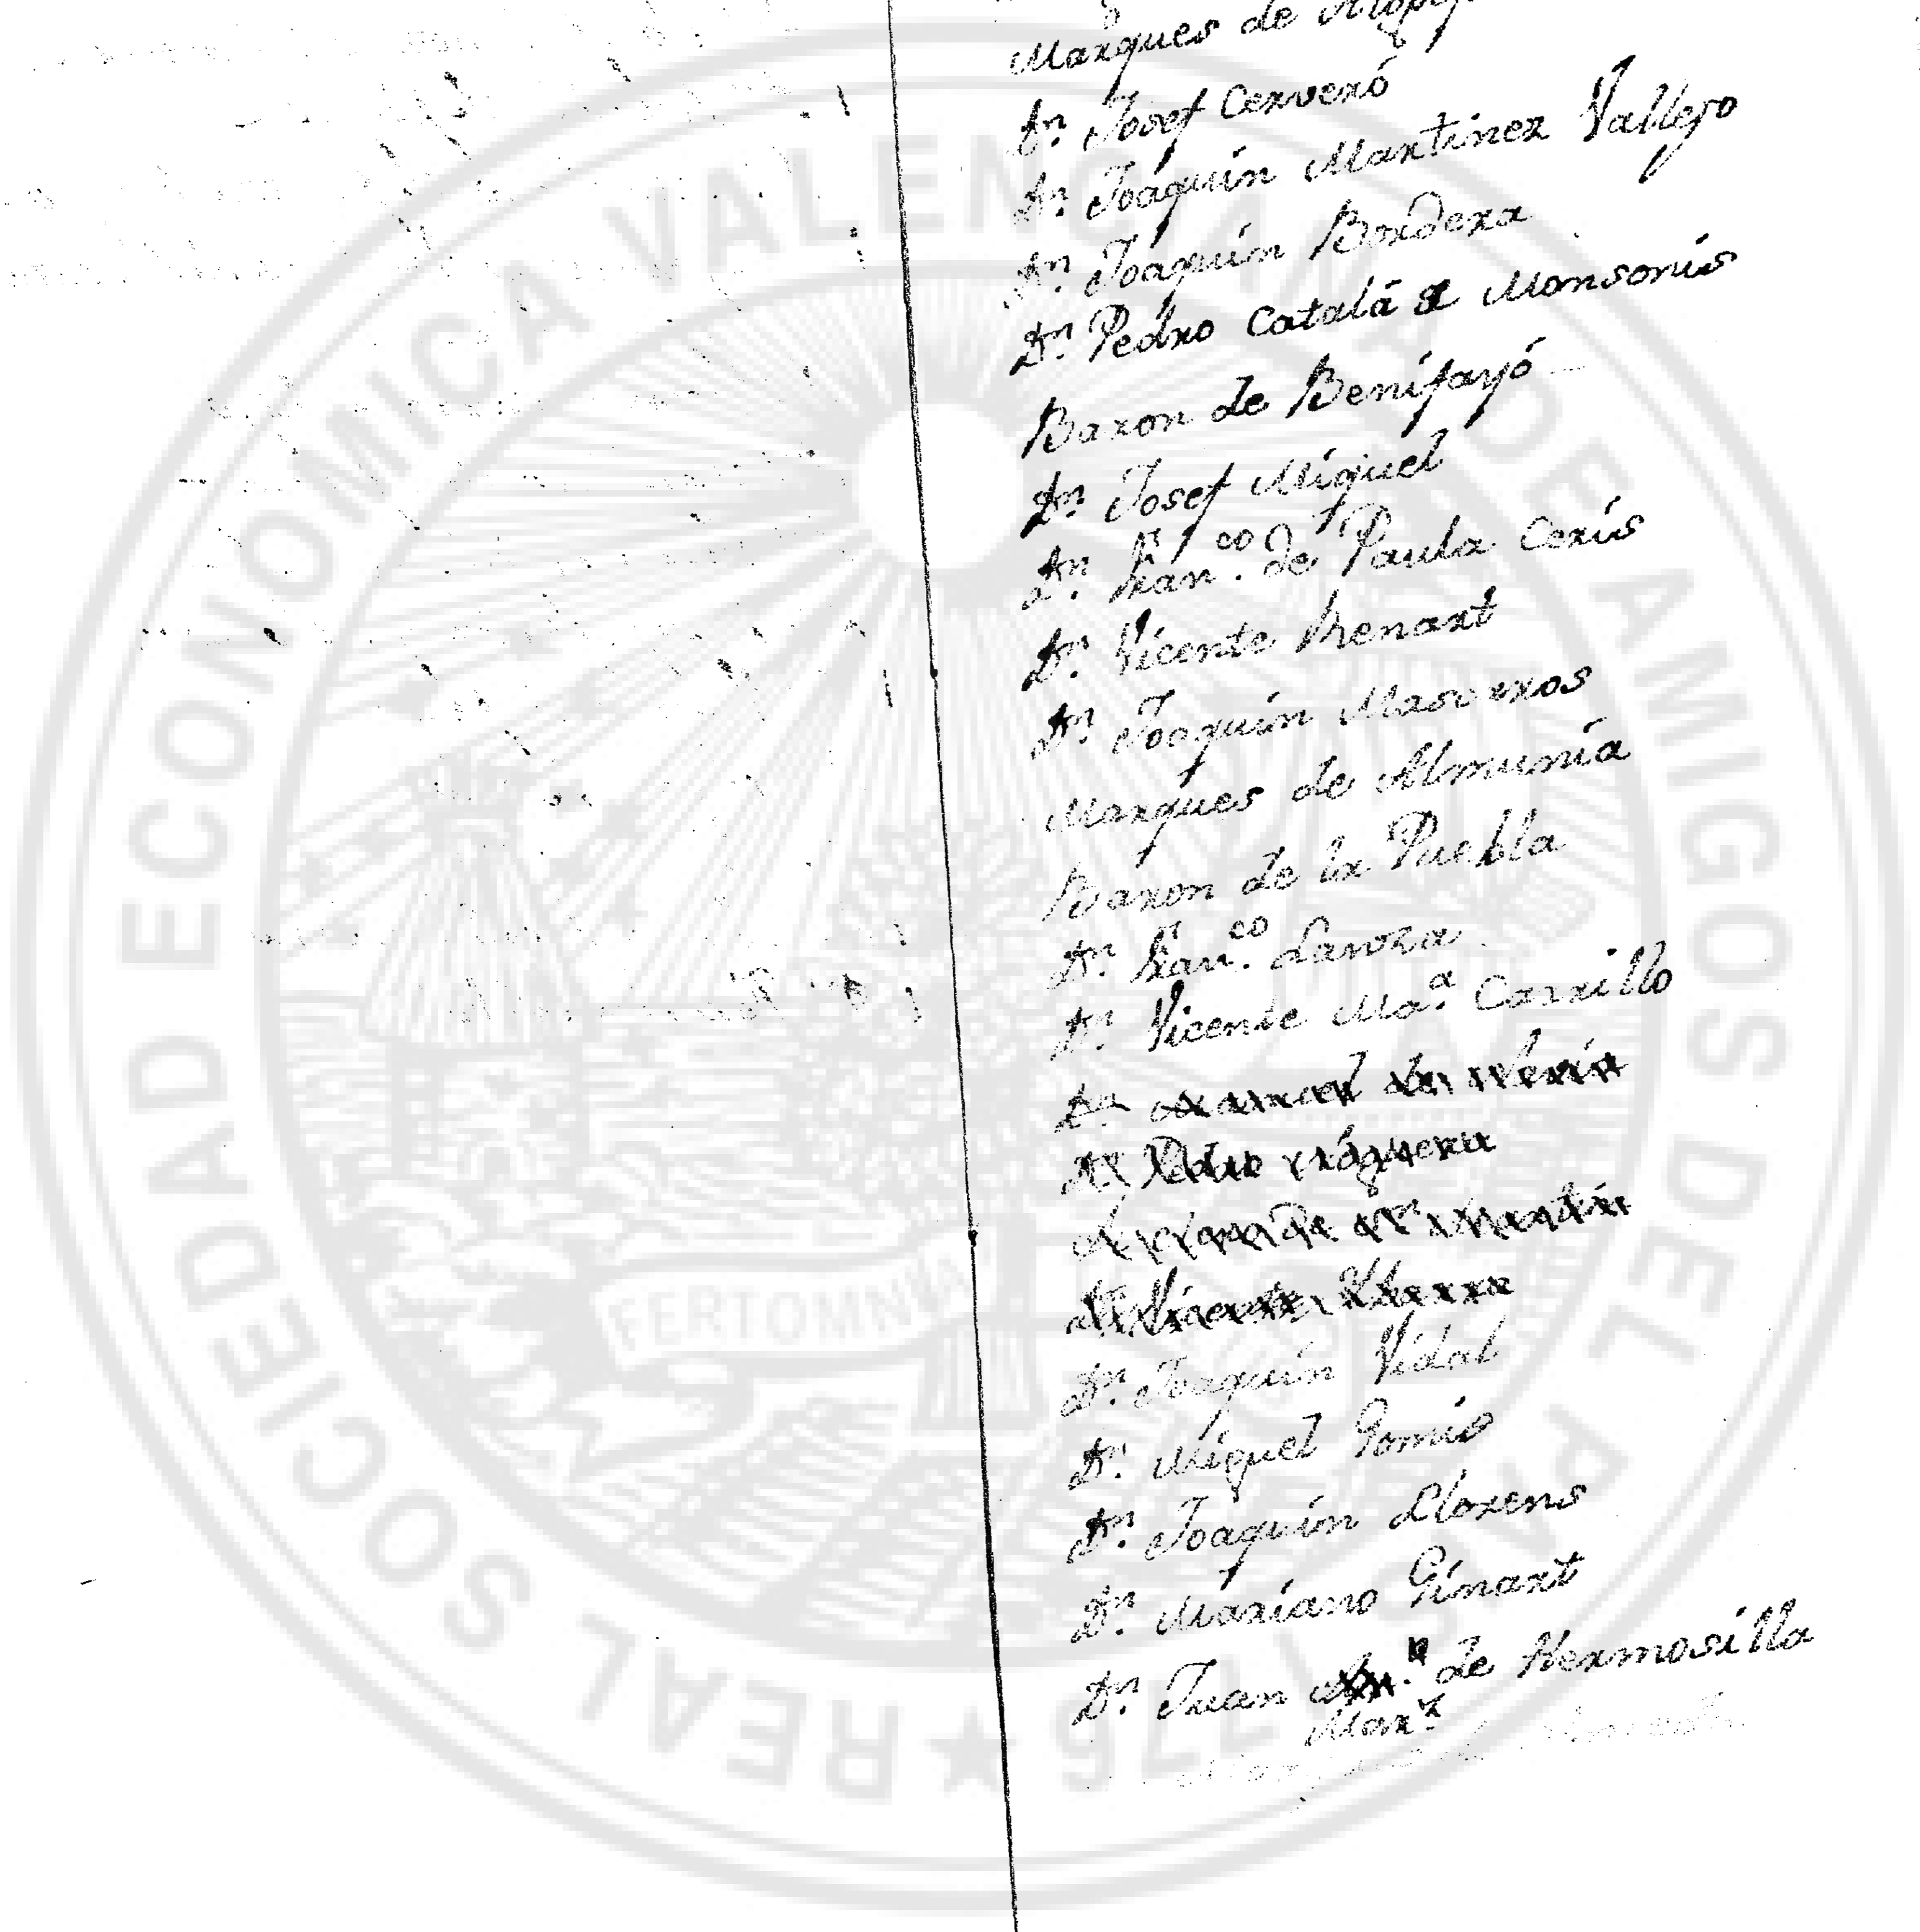 Marques de
Dn. Josef Cerveró
Dn. Joaquin Martinez Vallejo
Dn. Joaquin Bordera
Dn. Pedro Catalá de Monsonís
Baron de Benifayó
Dn. Josef Miguel
Dn. Fran.co de Paula Cerís
Dn. Vicente Trenart
Dn. Joaquin Mascarros
Marques de Almunía
Baron de la Puebla
Dn. Fran.co Lanza
Dn. Vicente Ma.a Carrillo
Dn. Manuel
Dn. Pedro
Dn. Vicente Ybarra
Dn. Joaquin Vidal
Dn. Miguel Gomis
Dn. Joaquin Llorens
Dn. Mariano Ginart
Dn. Juan de Hermosilla
Mar.z
REAL SOCIEDAD ECONOMICA VALENCIANA DE AMIGOS DEL PAIS ★ 1776